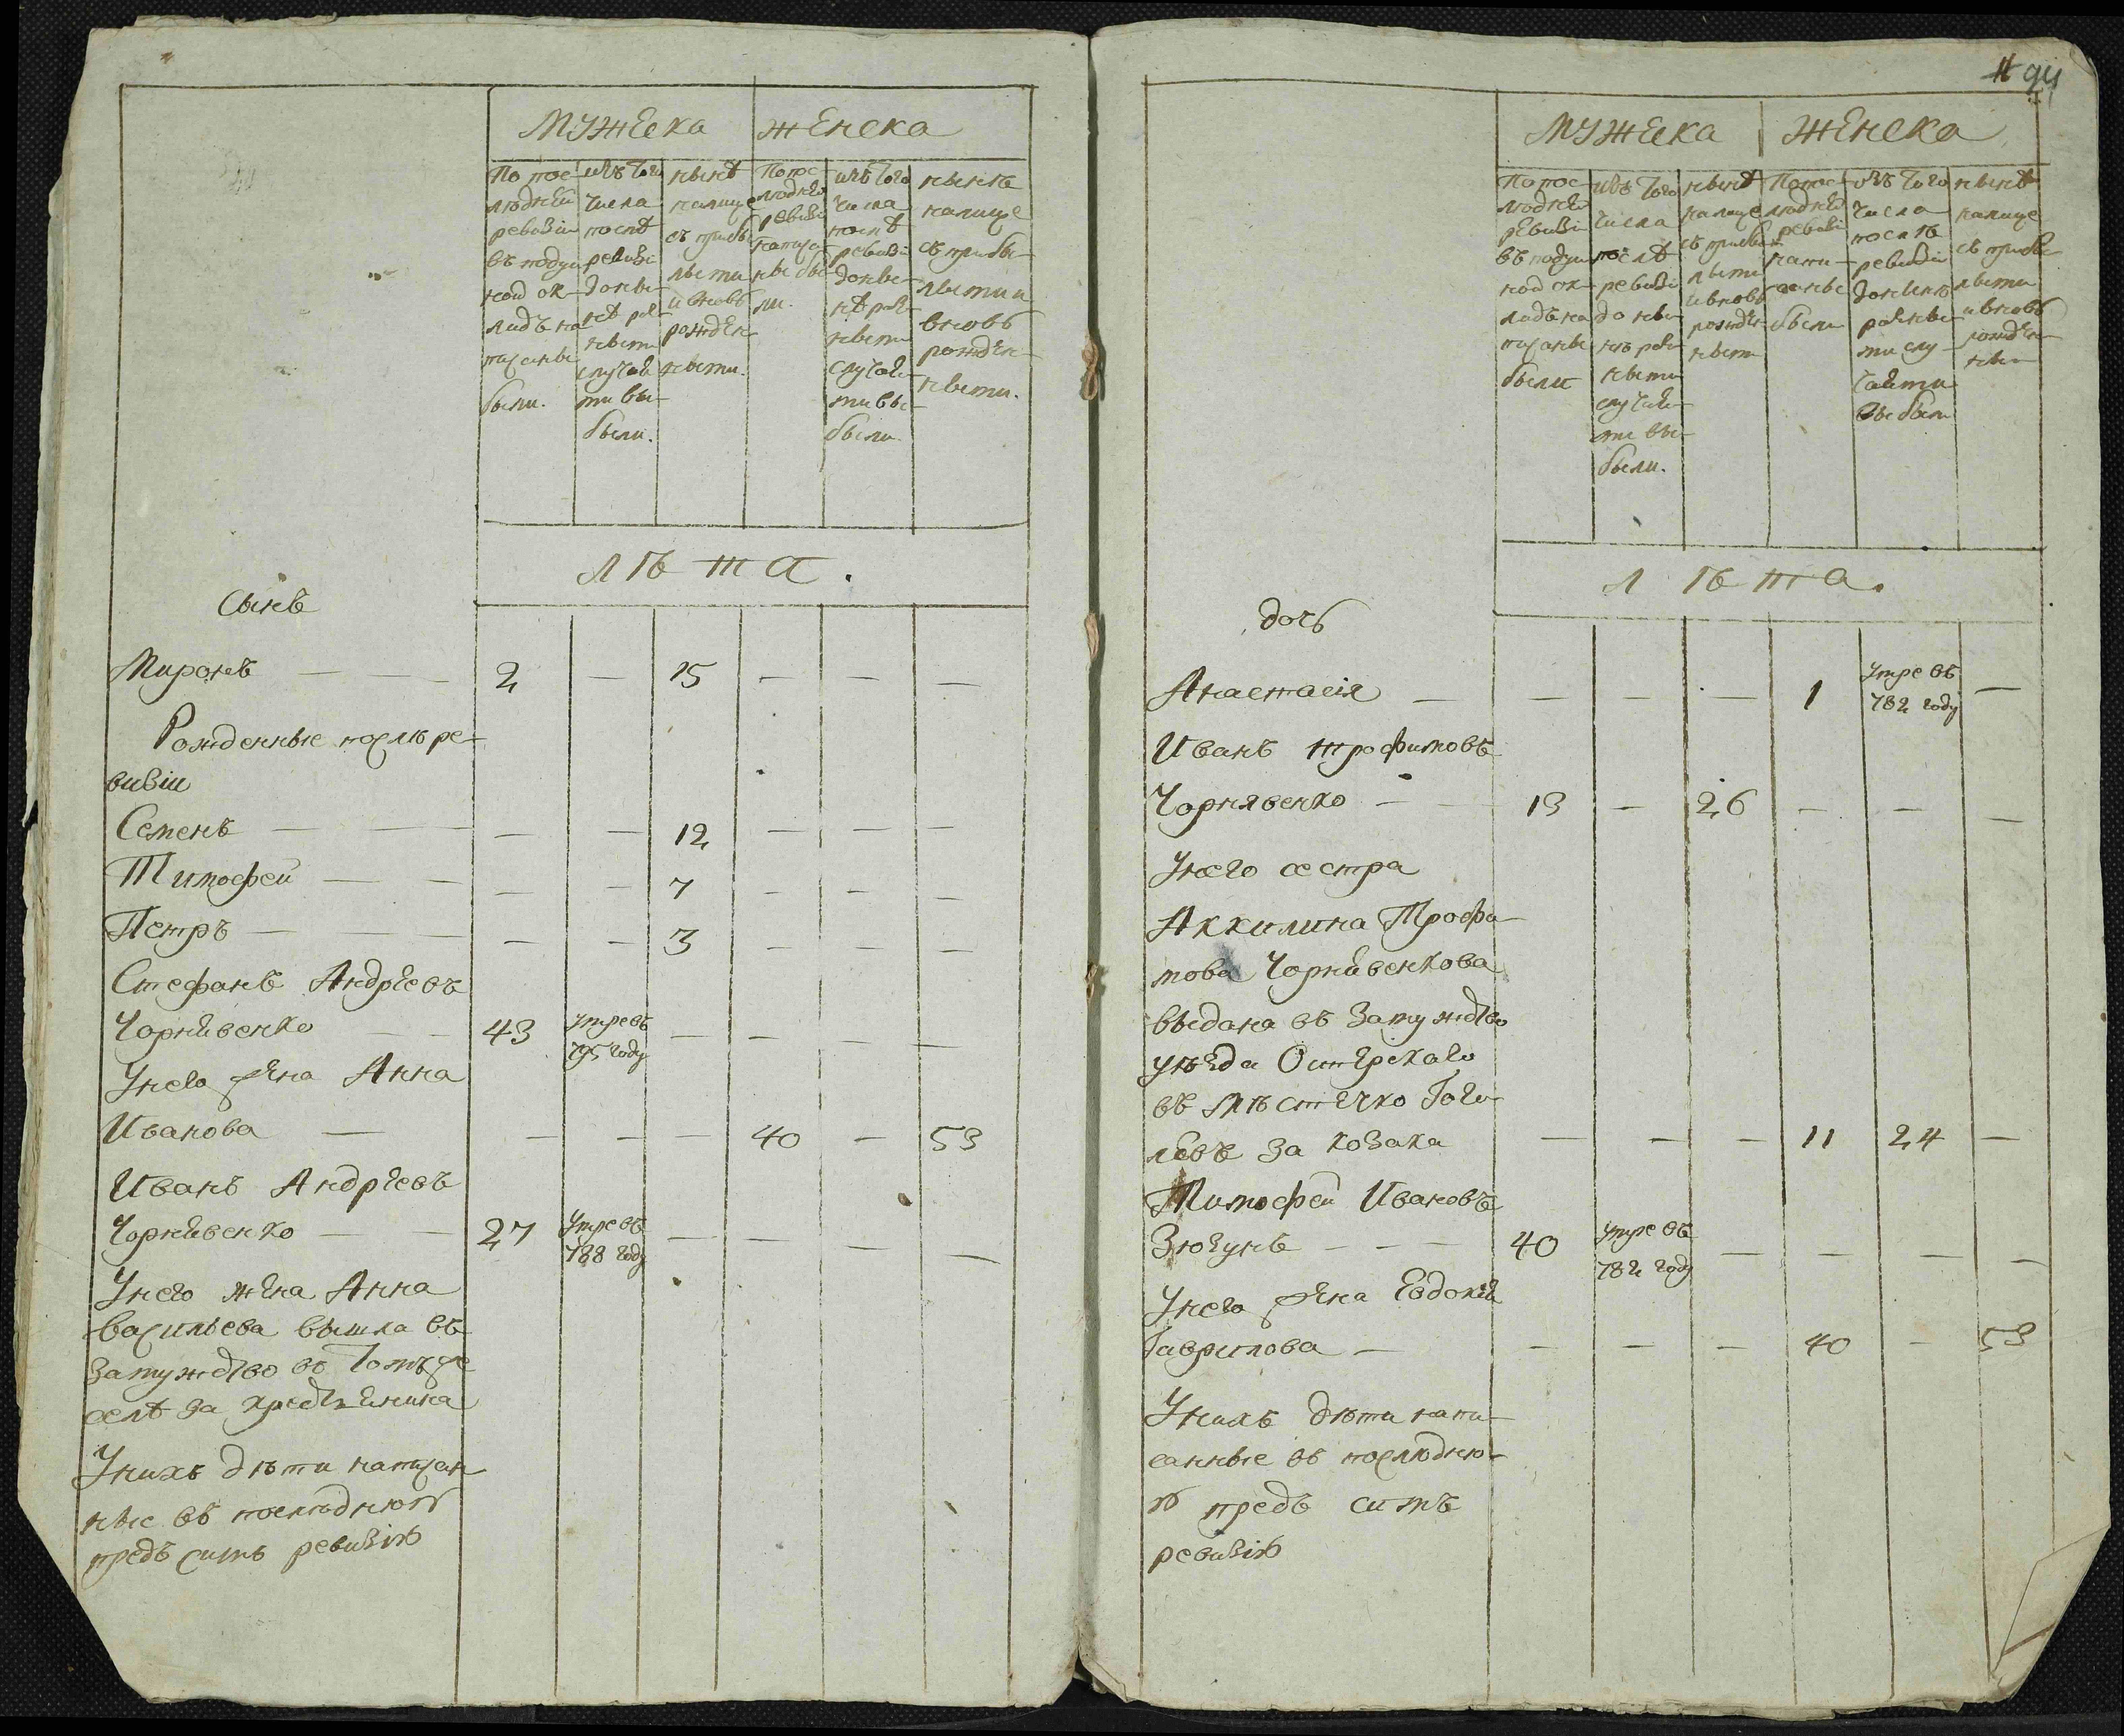 мужеска женска
По пос-
лѣдней
ревизіи
въ подуш-
ной ок-
ладъ на
писаны
были.
изъ того
числа
послѣ
ревизі
до ны-
нѣ раз
ными
случай
ми вы-
были.
нынѣ
налице
съ прибы
лыми
и вновь
рожден
ными.
По пос
лѣдней
ревизі
написа
ны бы-
ли.
изъ того
числа
послѣ
ревизі
до ны-
нѣ раз-
ными
случай-
ми вы-
были
нынѣ
налице
съ прибы-
лыми и
вновь
рожден-
ными.
лѣта.
сынъ
Миронъ — — — 2 — 15 — — —
Рожденные послѣ ре-
визіи
Семенъ — — — — 12 — — —
Тимофей — — — — 7 — — —
Петръ — — — — 3 — — —
Стефанъ Андреевъ
Чорнѣвенко — — 43 умре въ 795 году — — — —
У него жена Анна
Иванова — — — — 40 — 53
Иванъ Андреевъ
Чорнѣвенко — — 27 умре въ 788 году — — — —
У него жена Анна
васильева вышла въ
замужство въ томъ же
селѣ за
У нихъ дѣти написан
ные въ послѣднюю
предъ симъ ревизію
94
мужска женска
По пос
лѣдней
ревизі
въ подуш
ной ок-
ладъ на
писаны
были
изъ того
числа
послѣ
ревизі
до ны-
нѣ раз
ными
случай-
ми вы-
были.
нынѣ
налице
съ прибы
лыми
и вновь
рожден
ными
По пос-
лѣдней
ревизі
напи-
саны
были
изъ того
числа
послѣ
ревизіи
до нынѣ
разны-
ми слу-
чайми
выбыли
нынѣ
налице
съ прибы
лыми
и вновь
рожден-
ны-
лѣта.
дочь
Анастасія — — — — 1 умре въ 782 году —
Иванъ трофимовъ
Чорнявенко — 13 — 26 — — —
У него сестра
Аккилина Трофи-
мова Чорнѣвенкова
выдана въ замужство
уѣзда Остерскаго
въ мѣстечко Гого-
левъ за козака — — — 11 24 —
Тимофей Ивановъ
Зюгунъ — — — 40 умре въ 782 году — — — —
У него жена Евдокія
Гаврилова — — — — 40 — 53
У нихъ дѣти напи-
санные въ послѣдню-
ю предъ симъ
ревизію